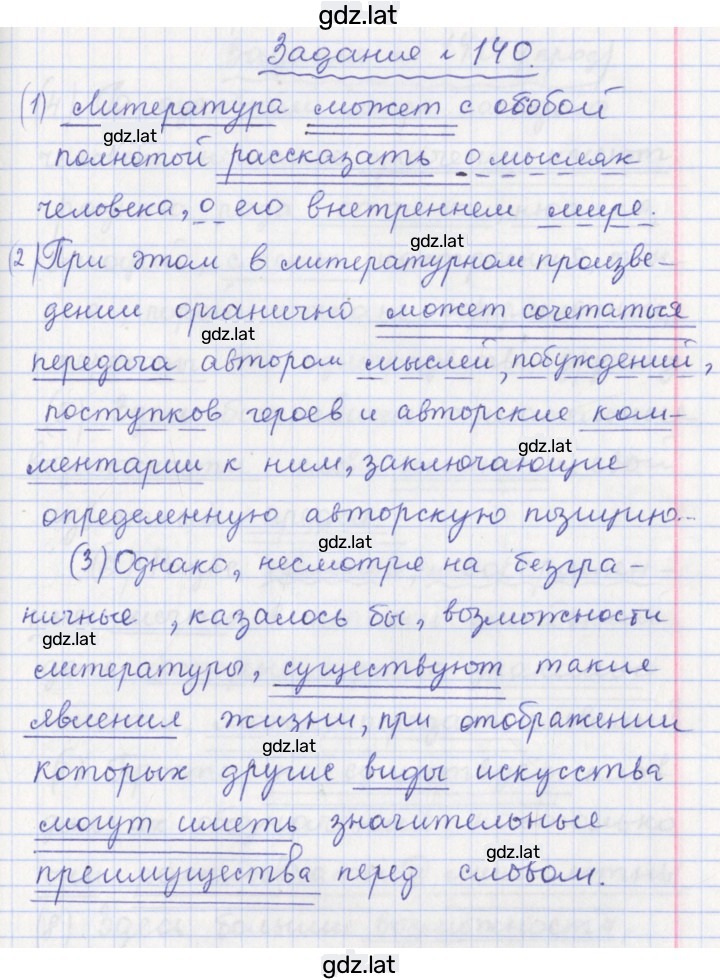 gdz.lat
Задание № 140.
(1) Литература может с особой
gdz.lat
полнотой рассказать о мыслях
человека, о его внетреннем мире.
gdz.lat
(2) При этом в литературном произве-
дении органично может сочетаться
gdz.lat
передача автором мыслей, побуждений,
поступков героев и авторские ком-
gdz.lat
ментарии к ним, заключающие
определенную авторскую позицию...
gdz.lat
(3) Однако, несмотря на безгра-
ничные, казалось бы, возможности
gdz.lat
литературы, существуют такие
явления жизни, при отображении
gdz.lat
которых другие виды искусства
могут иметь значительные
gdz.lat
преимущества перед словом.
gdz.lat